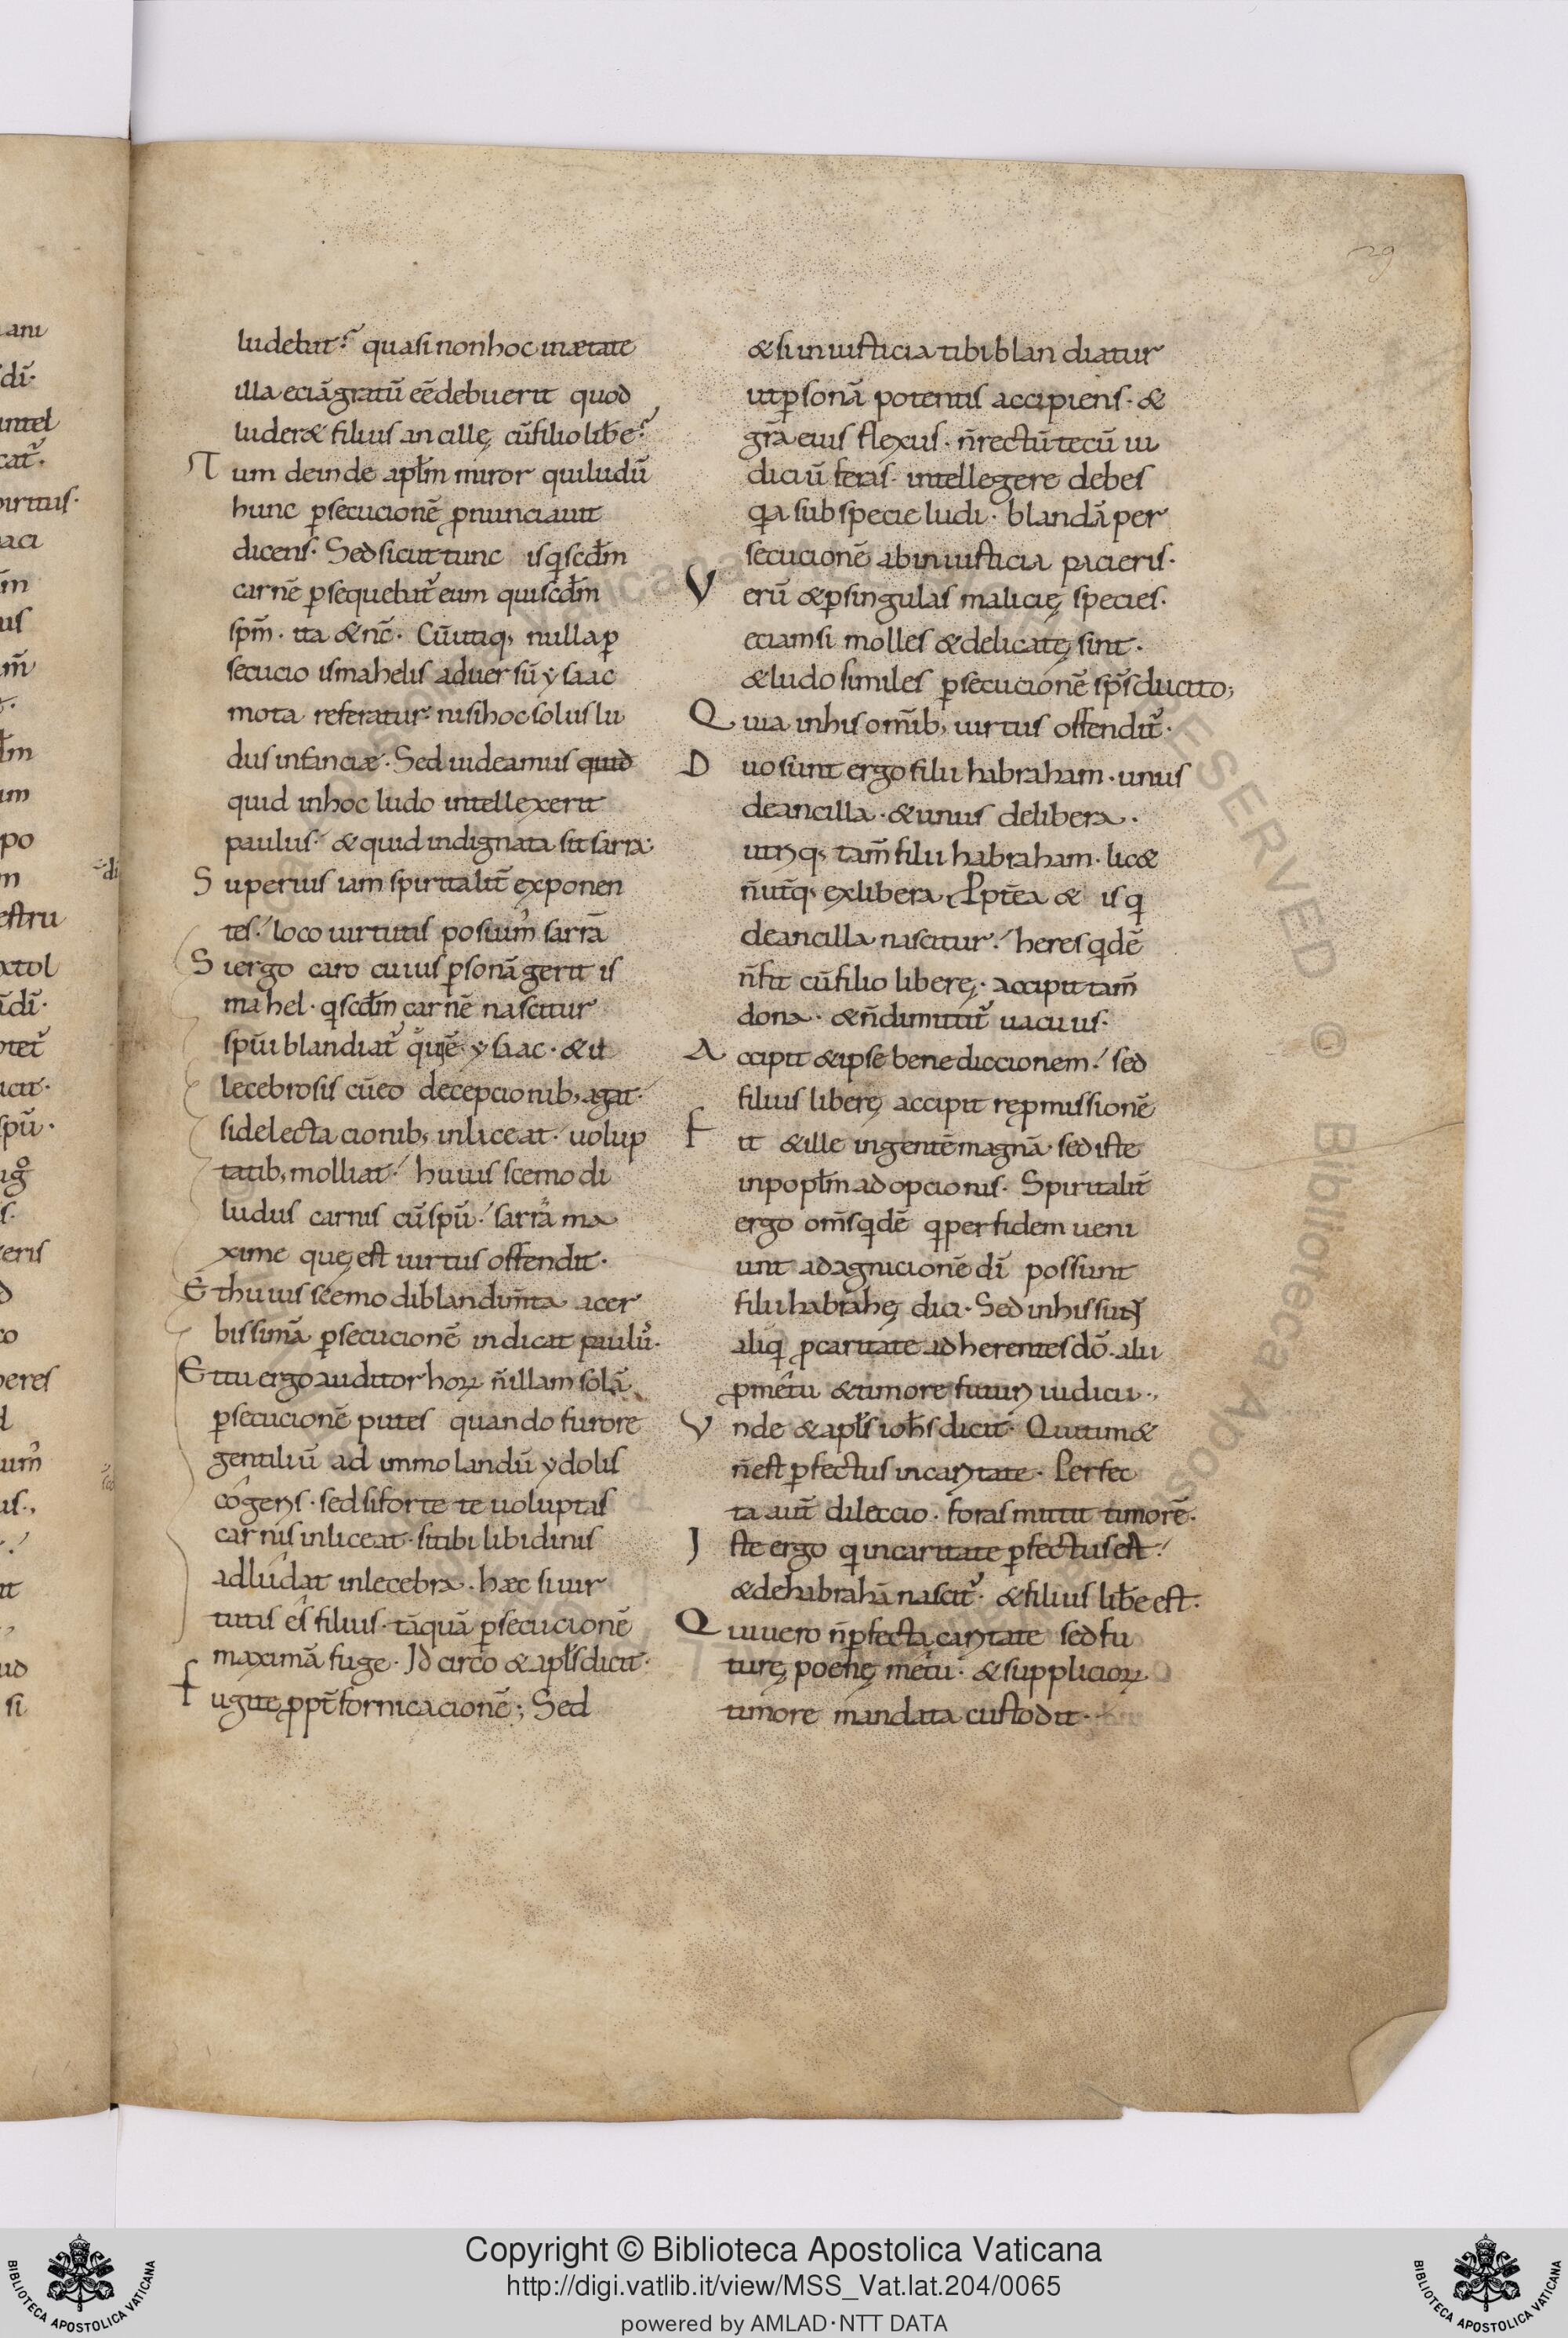 29
ludebat? quasi non hoc in ætate
illa eciā gratū eē debuerit quod
luderet filius ancillę cū filio libꝫę?
Tum deinde apłm miror qui ludū
hunc ꝑsecucionē ꝓnunciauit
dicens· Sed sicut tunc is q̄ scdm̄
carnē ꝑsequebat᷑ eum qui scdm̄
spm̄· ita & nc̄· Cū utiq; nulla ꝑ
secucio ismahelis aduersū ysaac
mota referatur· nisi hoc solus lu
dus infanciæ· Sed uideamus quid
quid in hoc ludo intellexerit
paulus· & quid indignata sit sarra·
Superius iam spiritalit̄ exponen
tes· loco uirtutis posuim᷒ sarrā
Si ergo caro cuius ꝑsonā gerit is
mahel· q̄ scdm̄ carnē nascitur
spūi blandiat᷑ qui ē ysaac· & il
lecebrosis cū eo decepcionib; agat·
si delectacionib; inliceat· uolup
tatib; molliat· huiuscemodi
ludus carnis cū spū· sarrā ma
xime quę est uirtus offendit·
Et huiuscemodi blandim̄ta acer
bissimā ꝑsecucionē indicat paulꝰ·
Et tu ergo auditor hoꝝ n̄ illam solā
ꝑsecucionē putes quando furore
gentiliū ad immolandū ydolis
cogeris· sed si forte te uoluptas
carnis inliceat· si tibi libidinis
adludat inlecebra· hæc si uir
tutis es filius· tāquā ꝑsecucionē
maximā fuge· Idcirco & apłs dicit·
Fugite ꝓpt̄ fornicacionē; Sed
& si iniusticia tibi blandiatur
ut ꝑsonā potentis accipiens· &
gr̄a eius flexus· n̄ rectū tecū iu
diciū feras· intellegere debes
q̄a sub specie ludi· blandā per
secucionē ab iniusticia pacieris·
Verū & ꝑ singulas malicię species·
eciam si molles & delicatę sint·
& ludo similes ꝑsecucionē sp̄s ducito;
Quia in his om̄ib; uirtus offendit᷑·
Duo sunt ergo filii habraham· unus
de ancilla· & unus de libera·
utꝝq; tam̄ filii habraham· licet
n̄ ut̄q; ex libera· Ꝓpt̄ea & is q̄
de ancilla nascitur· heres q̄dē
n̄ fit cū filio liberę· accipit tam̄
dona· & n̄ dimittit᷑ uacuus·
Accipit & ipse benediccionem· sed
filius liberę accipit repromissionē
Fit & ille in gentē magnā· sed iste
in popłm adopcionis· Spiritalit̄
ergo om̄s q̄dē q̄ per fidem ueni
unt ad agnicionē dī possunt
filii habrahę dici· Sed in his sunt
aliq̄ ꝓ caritate adherentes dō· alii
ꝓ metu & timore futuri iudicii·,
Vnde & apłs iohs̄ dicit· Qui timet
n̄ est ꝑfectus in caritate· Perfec
ta aut̄ dileccio· foras mittit timorē·
Iste ergo q̄ in caritate ꝑfectus est·
& de habrahā nascit᷑· & filius liberę est·
Qui uero n̄ ꝑfecta caritate sed fu
turę poenę metu· & supplicioꝝ
timore mandata custodit·
Copyright © Biblioteca Apostolica Vaticana
http://digi.vatlib.it/view/MSS_Vat.lat.204/0065
powered by AMLAD·NTT DATA
BIBLIOTECA APOSTOLICA VATICANA
BIBLIOTECA APOSTOLICA VATICANA